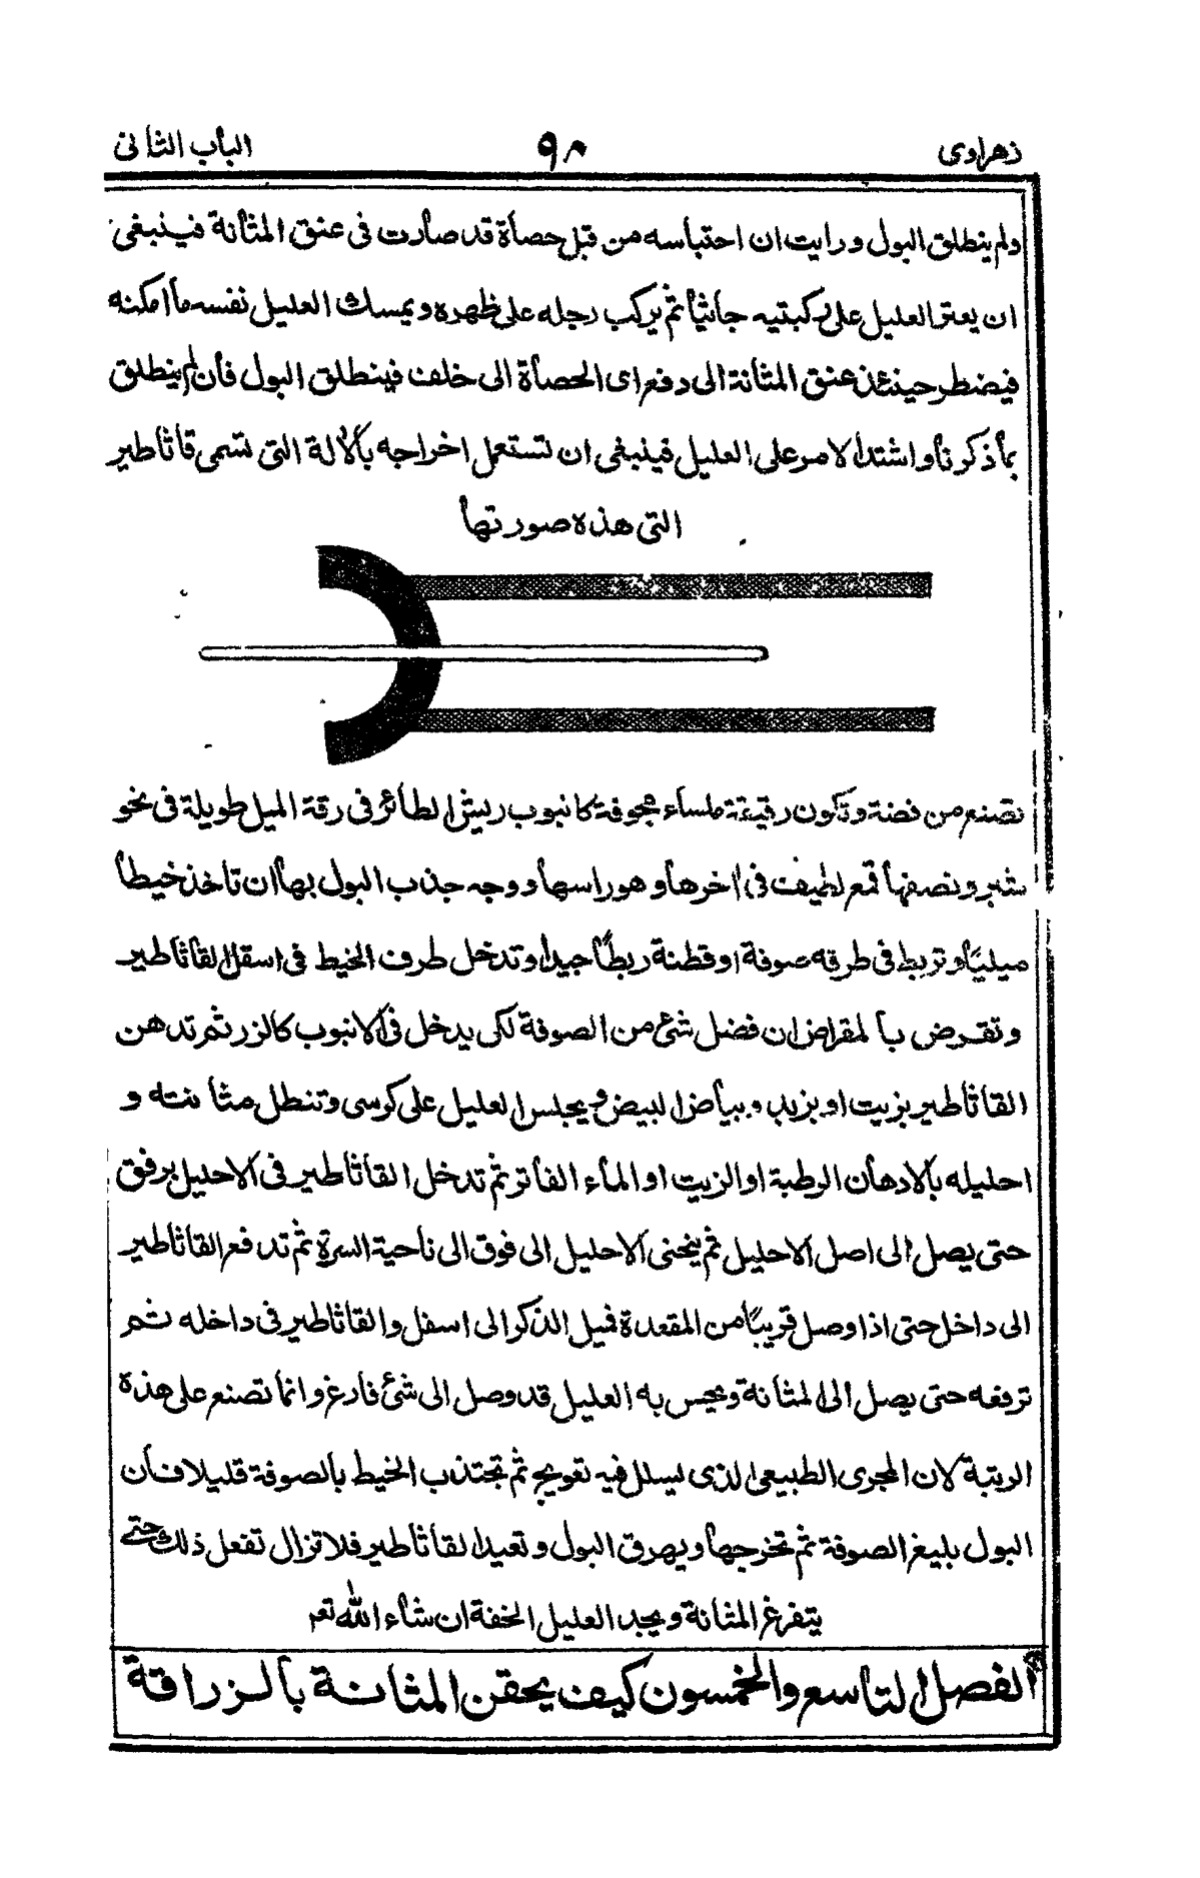 زهراوى ٩٨ الباب الثانى
ولم ينطلق البول ورايت ان احتباسه من قبل حصاة قد صارت فى عنق المثانة فينبغى
ان يعتر العليل على ركبتيه جاثيا ثم يركب رجله على ظهره ويمسك العليل نفسه ما امكنه
فيضطر حينئذ عنق المثانة الى دفع اى الحصاة الى خلف فينطلق البول فان لم ينطلق
بما ذكرنا واشتد الامر على العليل فينبغى ان تستعمل اخراجه بالالة التى تسمى قاثاطير
التى هذه صورتها
تصنع من فضة وتكون رقيقة ملساء مجوفة كانبوب ريش الطائر فى رقة الميل طويلة فى نحو
شبر ونصفها قمع لطيف فى اخرها وهو راسها ووجه جذب البول بها ان تاخذ خيطا
ميليا وتربط فى طرفه صوفة او قطنة ربطا جيدا وتدخل طرف الخيط فى اسفل القاثاطير
وتقرض بالمقراض ان فضل شئ من الصوفة لكى يدخل فى الانبوب كالزر ثم تدهن
القاثاطير بزيت او بزبد وبياض البيض ويجلس العليل على كرسى وتنطل مثانته و
احليله بالادهان الرطبة او الزيت او الماء الفاتر ثم تدخل القاثاطير فى الاحليل برفق
حتى يصل الى اصل الاحليل ثم ينحنى الاحليل الى فوق الى ناحية السرة ثم تدفع القاثاطير
الى داخل حتى اذا وصل قريبًا من المقعدة فميل الذكر الى اسفل والقاثاطير فى داخله ثم
ترفعه حتى يصل الى المثانة ويحس به العليل قد وصل الى شئ فارغ وانما تصنع على هذه
الرتبة لان المجرى الطبيعى الذى يسلل فيه تعويج ثم تجتذب الخيط بالصوفة قليلا فان
البول يليغ الصوفة ثم تخرجها ويهرق البول وتعيد القاثاطير فلا تزال تفعل ذلك حتى
يتفرغ المثانة ويجد العليل الخفة ان شاء الله تعم
الفصل التاسع والخمسون كيف يحقن المثانة بالزراقة